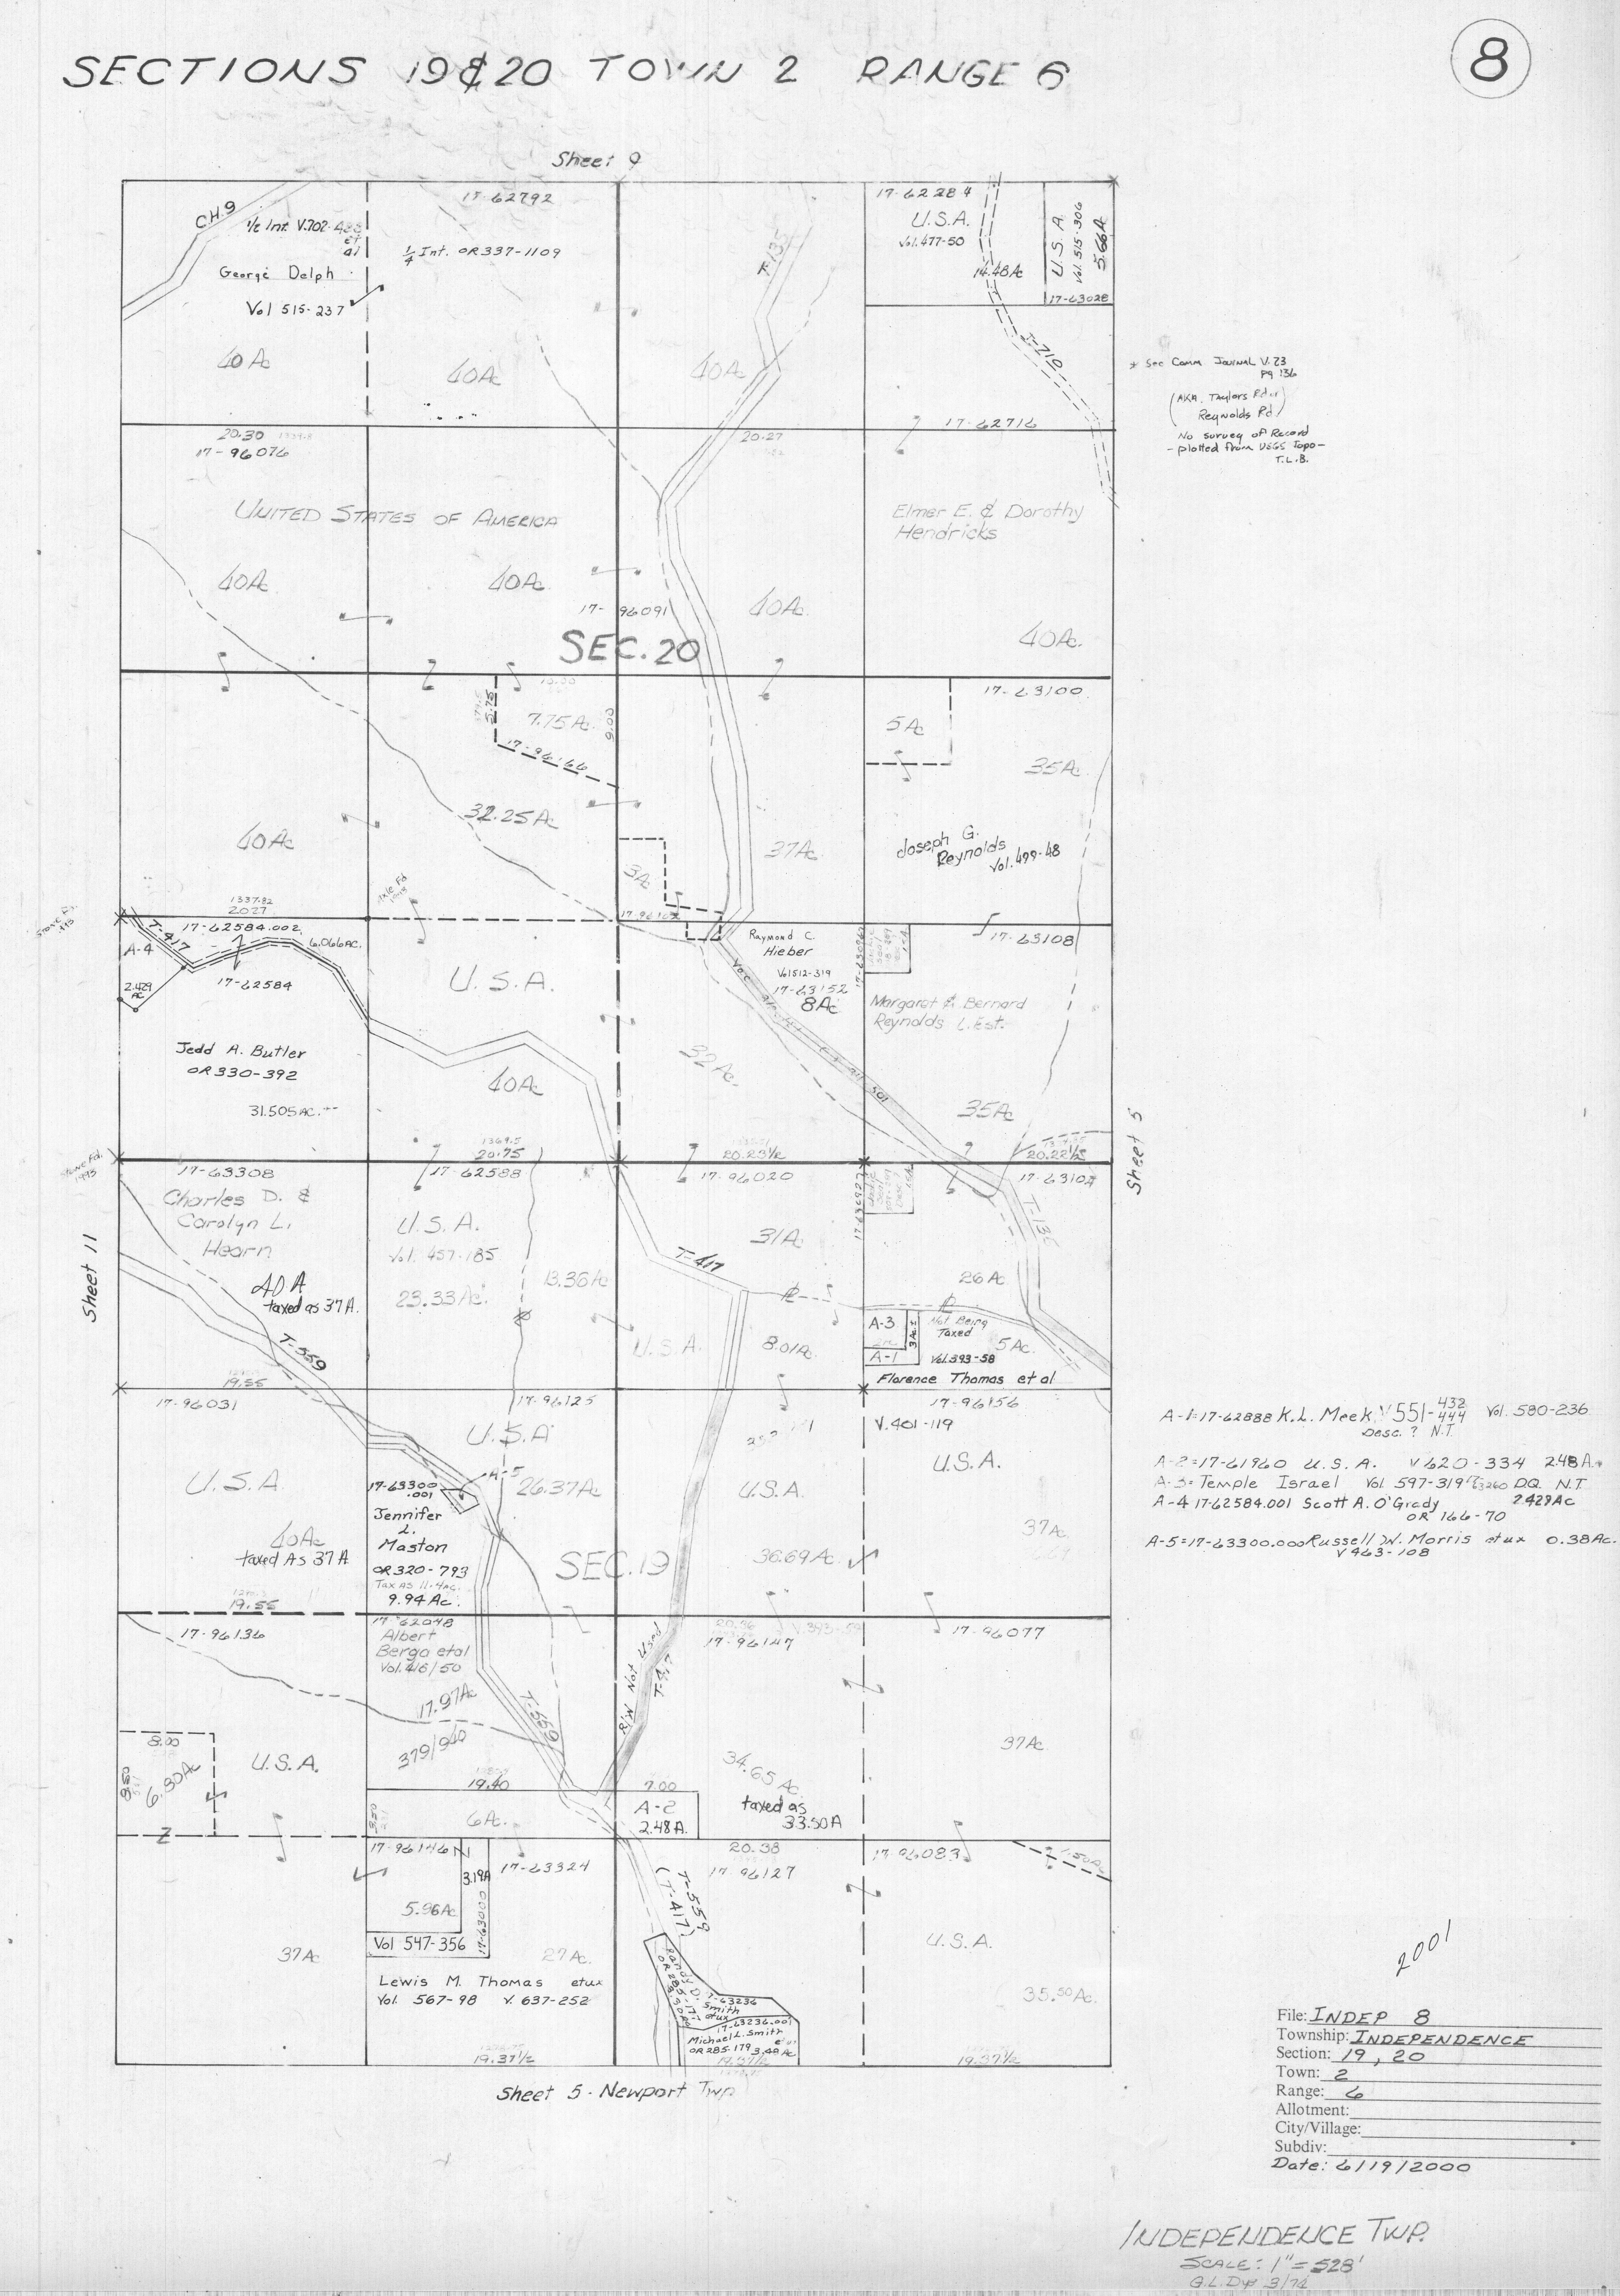 SECTIONS 19 & 20 TOWN 2 RANGE 6
8
Sheet 9
C.H.9
1/2 Int. V.702-
et
al
George Delph
Vol 515-237
40 Ac
17-62792
1/4 Int. OR 337-1109
40Ac
T-135
40Ac
17-62284
U.S.A.
Vol.477-50
14.48Ac
U.S.A.
Vol. 515-306
5.66A
17-63028
T-710
17-62716
* See Comm Journal V.23
Pg 136
(AKA. Taylors Rd.
Reynolds Rd.)
No survey of Record
- plotted from USGS Topo -
T.L.B.
20.30
17-96076
20.27
UNITED STATES OF AMERICA
Elmer E. & Dorothy
Hendricks
40Ac
40Ac
17-96091
40Ac
40Ac.
SEC. 20
5.75
7.75 Ac
9.00
17-96166
5 Ac
17-63100
35Ac
40Ac
32.25Ac
3A
37Ac
Joseph G.
Reynolds
Vol.499-48
1337.82
2027
17-96162
A-4
T-417
17-62584.002
6.066AC.
2.429
AC
17-62584
U.S.A.
Raymond C.
Hieber
Vol 512-319
17-63152
8Ac
17-63108
Margaret & Bernard
Reynolds L.Est.
Jedd A. Butler
OR 330-392
31.505 AC.
40Ac
32Ac.
35Ac
Sheet 5
1369.5
20.75
20.23 1/2
20.22 1/2
17-63308
Charles D. &
Carolyn L.
Hearn
40 A
taxed as 37A.
17-62588
U.S.A.
Vol. 457-185
23.33Ac.
13.36Ac
17-96020
31A
17-63104
T-135
26Ac
Sheet 11
T-417
T-559
U.S.A.
8.01Ac
A-3
A-1
Not Being
Taxed
5Ac.
Vol.393-58
Florence Thomas et al
19.55
17-96031
17-96125
17-96156
V.401-119
U.S.A.
U.S.A.
U.S.A.
U.S.A.
A-5
17-63300
.001
Jennifer
L.
Maston
OR 320-793
Tax as 11.4ac.
9.94 Ac.
26.37Ac
40Ac
taxed As 37A
SEC. 19
36.69Ac.
37Ac.
A-1=17-62888 K.L. Meek V 551-432
444
Vol. 580-236
Desc. ? N.T.
A-2=17-61960 U.S.A. V 620-334 2.48A.
A-3=Temple Israel Vol. 597-319 D.Q. N.T
A-4 17-62584.001 Scott A. O'Grady 2.429Ac
OR 166-70
A-5=17-63300.000 Russell W. Morris et ux 0.38Ac.
V 463-108
19.55
17-96136
17-62048
Albert
Bergo etal
Vol.416/50
17.97Ac
379/940
T-559
R/W Not Used
17-96147
17-96077
8.00
6.80Ac
U.S.A.
19.40
6Ac.
7.00
A-2
2.48A.
34.65 Ac
taxed as
33.50A
37Ac.
17-96146
3.19A
17-63324
5.96Ac
17-63000
Vol 547-356
20.38
17-96127
T-559
(T-417)
17-96083
37Ac
27Ac.
Lewis M. Thomas etux
Vol. 567-98 V. 637-252
U.S.A.
35.50Ac.
Randy D.
Smith
etux
17-63236
17-63236.001
Michael L. Smith
OR 285-179 3.49Ac
19.37 1/2
19.37 1/2
19.37 1/2
Sheet 5 - Newport Twp
2001
File: INDEP 8
Township: INDEPENDENCE
Section: 19, 20
Town: 2
Range: 6
Allotment:
City/Village:
Subdiv:
Date: 6/19/2000
INDEPENDENCE TWP.
SCALE: 1" = 528'
G.L.Dye 3/74